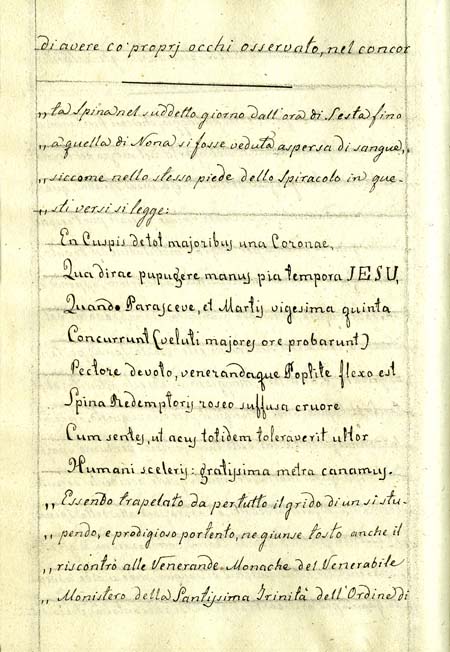 di avere co' proprj occhi osservato, nel concor
„ ta Spina nel suddetto giorno dall'ora di Sesta fino
„ a quella di Nona si fosse veduta aspersa di sangue,
„ siccome nello stesso piede dello Spiracolo in que-
„ sti versi si legge:
En Cuspis de tot majoribus una Coronae,
Qua dirae pupugere manus pia tempora JESU,
Quando Parasceve, et Martis vigesima quinta
Concurrunt (veluti majores ore probarunt)
Pectore devoto, venerandaque Poplite flexo est
Spina Redemptoris roseo suffusa cruore
Cum sentes, ut acus totidem toleraverit ultor
Humani sceleris: gratissima metra canamus.
„ Essendo trapelato da pertutto il grido di un sì stu-
„ pendo, e prodigioso portento, ne giunse tosto anche il
„ riscontro alle Venerande Monache del Venerabile
„ Monistero della Santissima Trinità dell'Ordine di